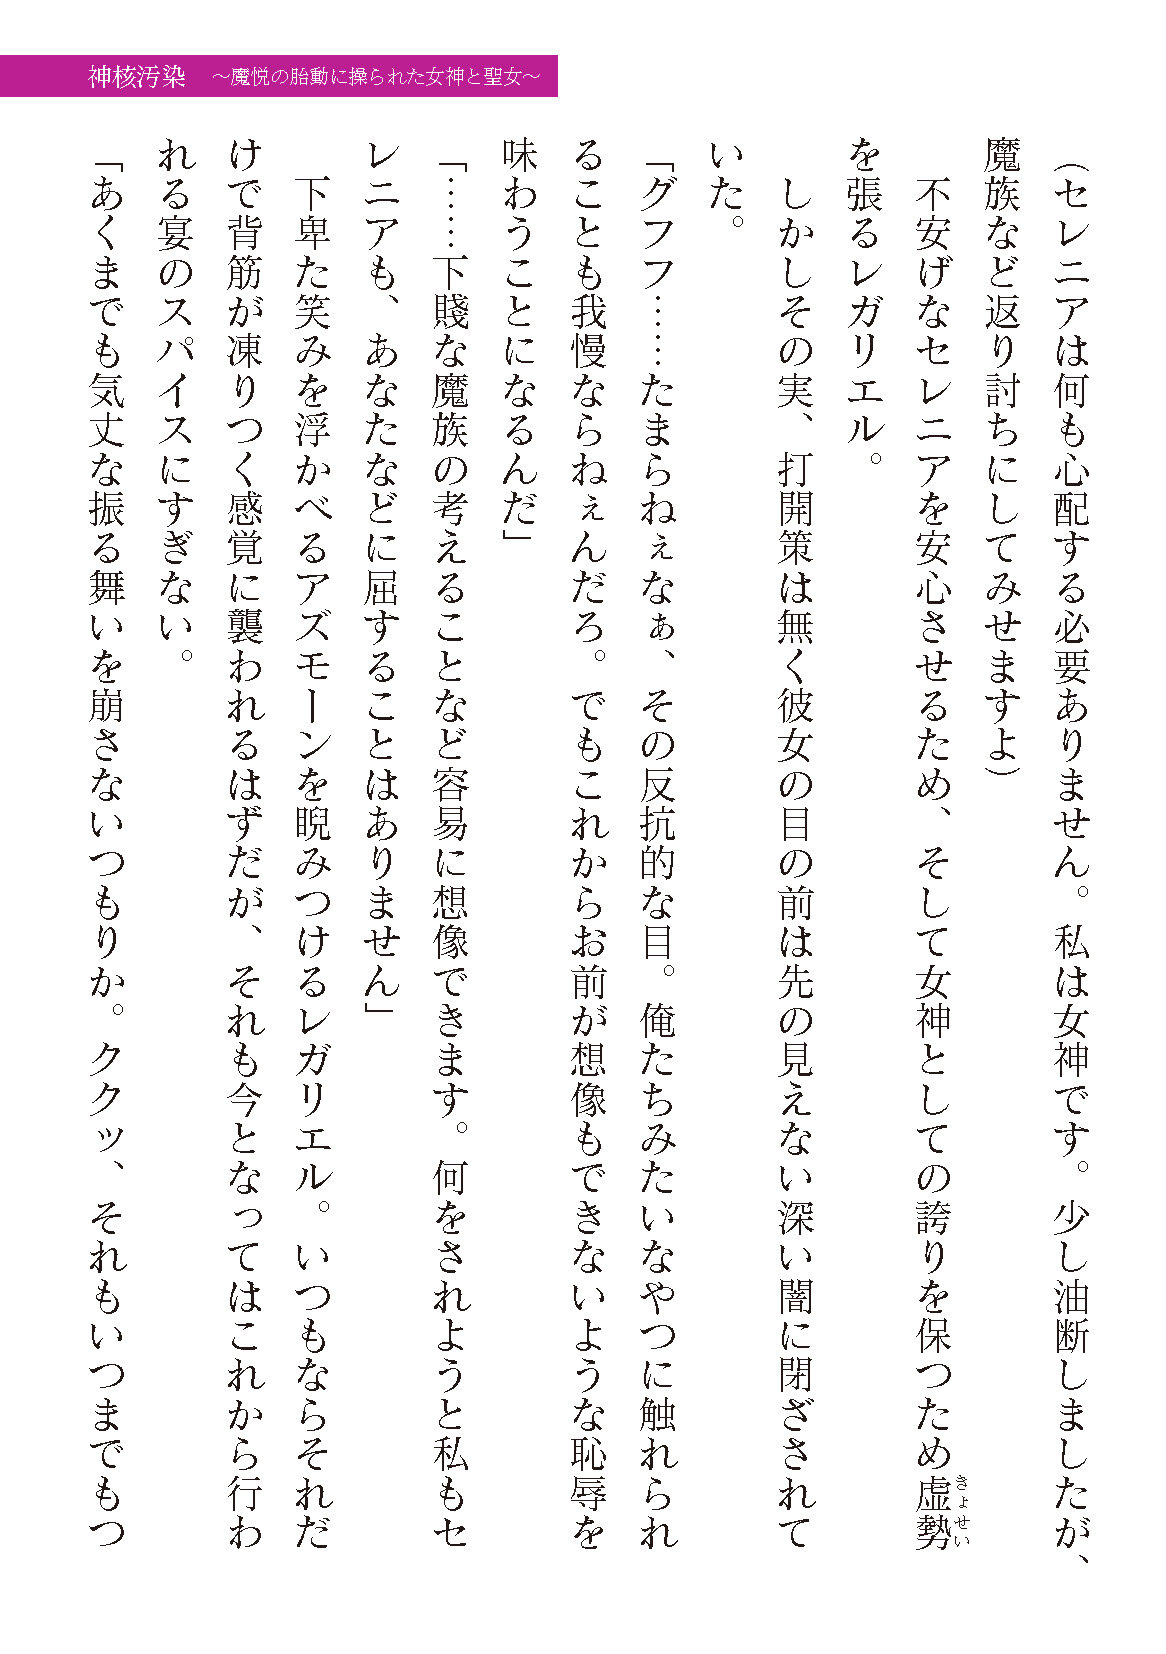 神核汚染 ～魔悦の胎動に操られた女神と聖女～
（セレニアは何も心配する必要ありません。私は女神です。少し油断しましたが、
魔族など返り討ちにしてみせますよ）
不安げなセレニアを安心させるため、そして女神としての誇りを保つため虚勢
きょせい
を張るレガリエル。
しかしその実、打開策は無く彼女の目の前は先の見えない深い闇に閉ざされて
いた。
「グフフ……たまらねぇなぁ、その反抗的な目。俺たちみたいなやつに触れられ
ることも我慢ならねぇんだろ。でもこれからお前が想像もできないような恥辱を
味わうことになるんだ」
「……下賤な魔族の考えることなど容易に想像できます。何をされようと私もセ
レニアも、あなたなどに屈することはありません」
下卑た笑みを浮かべるアズモーンを睨みつけるレガリエル。いつもならそれだ
けで背筋が凍りつく感覚に襲われるはずだが、それも今となってはこれから行わ
れる宴のスパイスにすぎない。
「あくまでも気丈な振る舞いを崩さないつもりか。ククッ、それもいつまでもつ